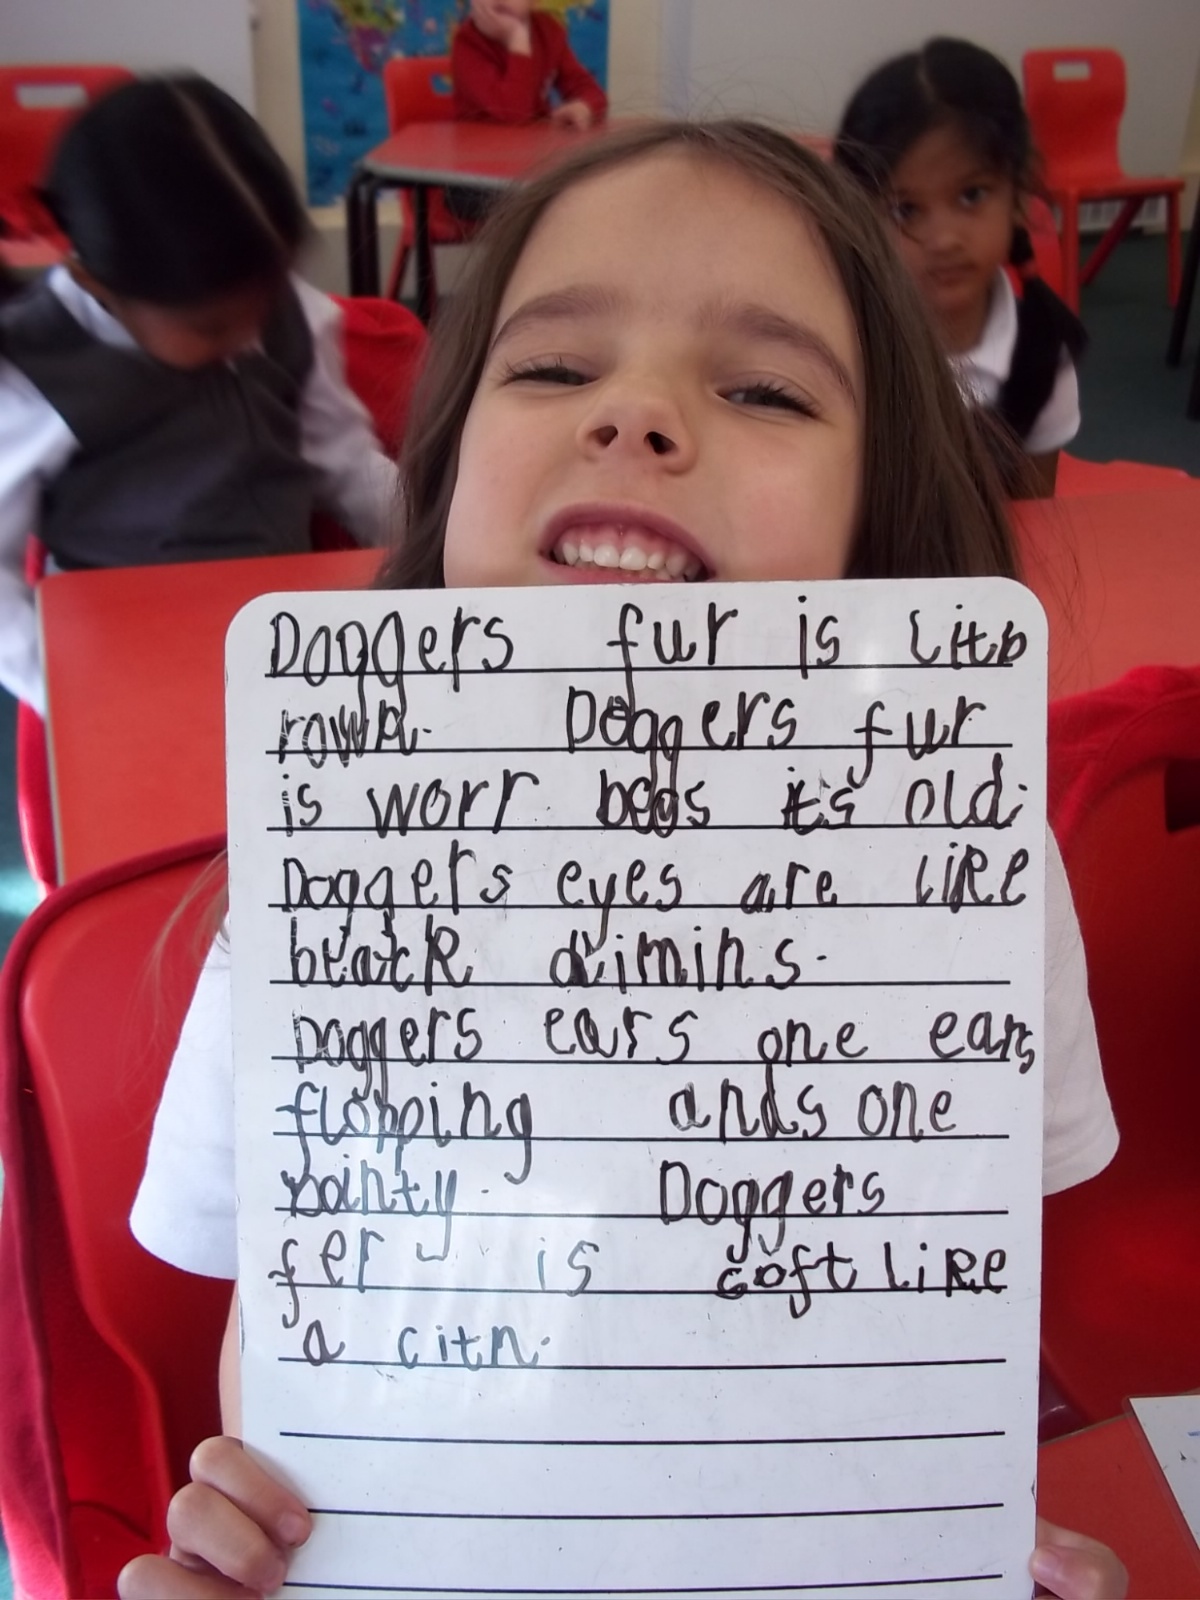 Doggers fur is litb
rown. Doggers fur
is worr begs it's old.
Doggers eyes are like
black dimins.
Doggers ears one ears
flopping ands one
pointy. Doggers
fer is soft like
a citn.